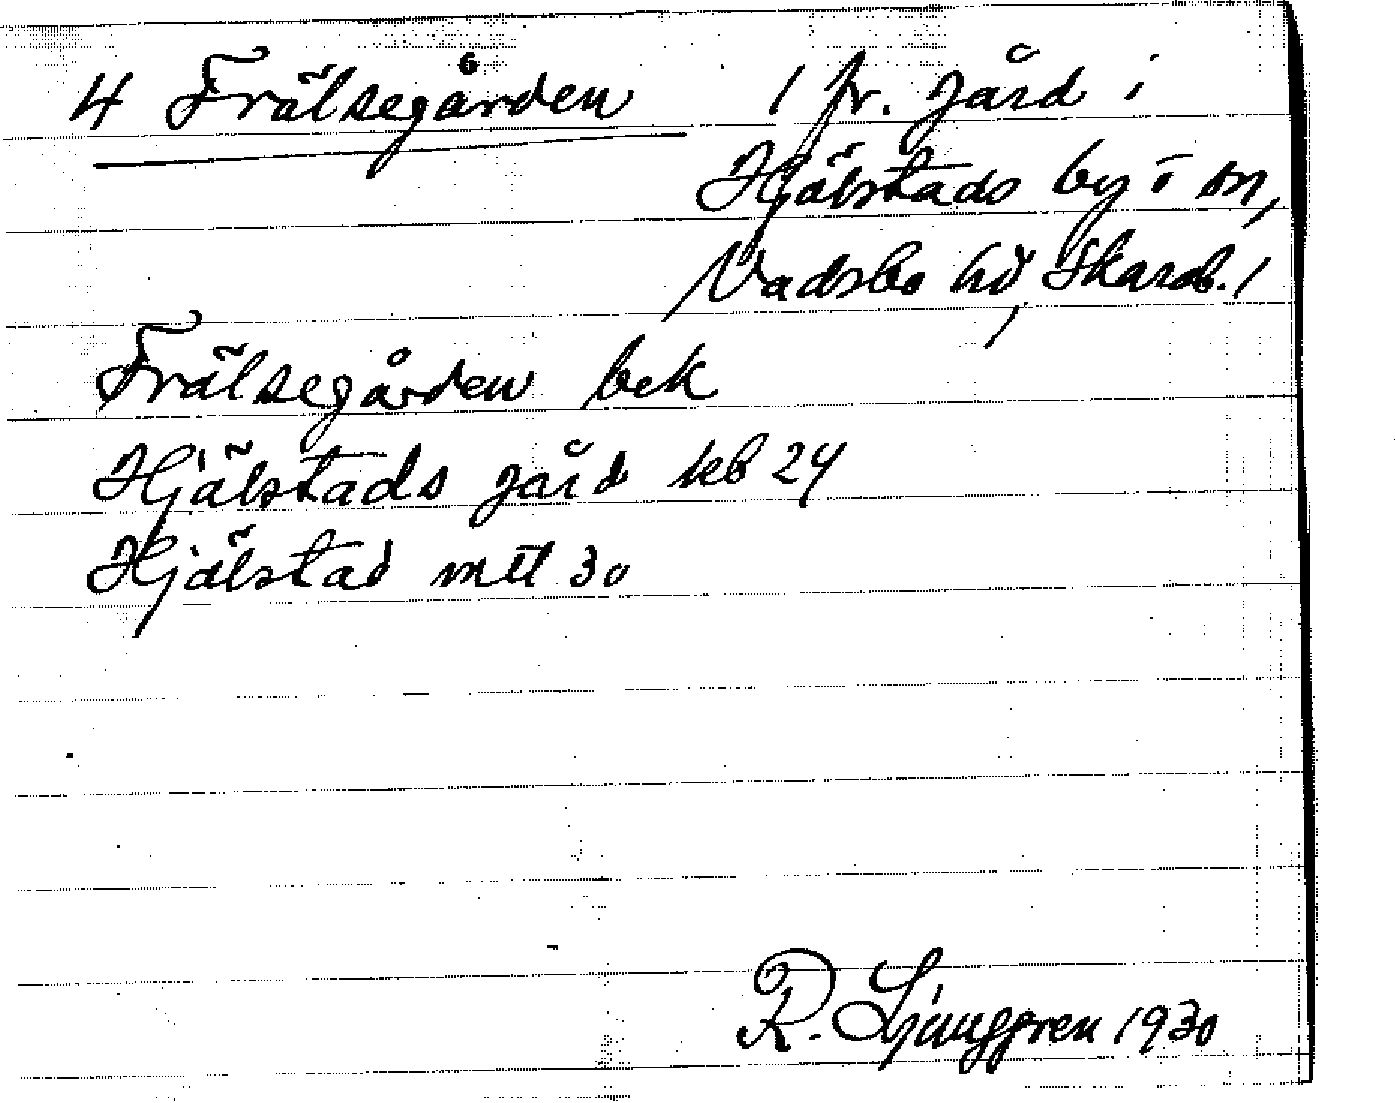 4 Frälsegården 1 fr. gård i
Hjälstads by i sn,
Vadsbo hd, Skarab. l
Frälsegården bek
Hjälstads gård seb 24
Hjälstad mtl 30
R. Ljunggren 1930